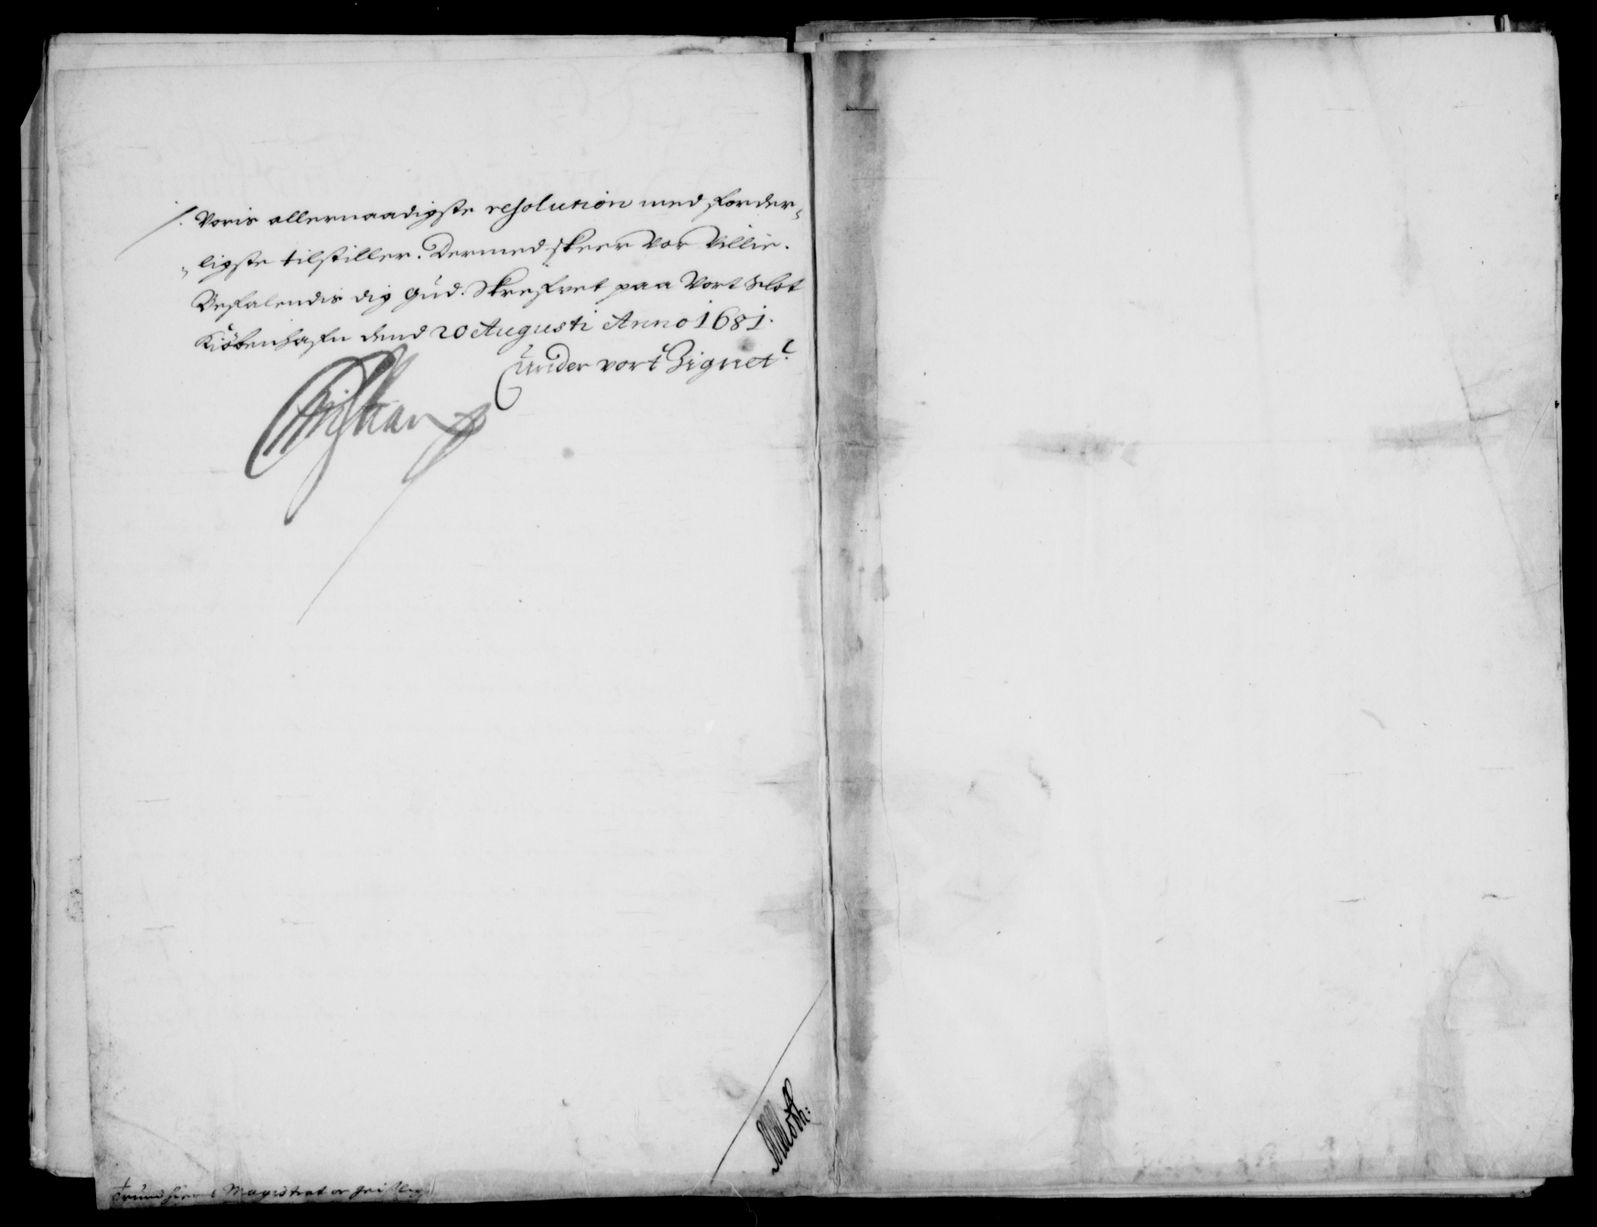 /. Voris allernaadigste resolution med forder-
-ligste tilstiller. Dermed skeer Vor Villie.
Befalendis dig Gud. Skrefvet paa Vort Slot
Kiöbenhafn dend 20 Augusti Anno 1681.
under vort Zignet.
Christian
Trundhiems Magistrat og geistlig